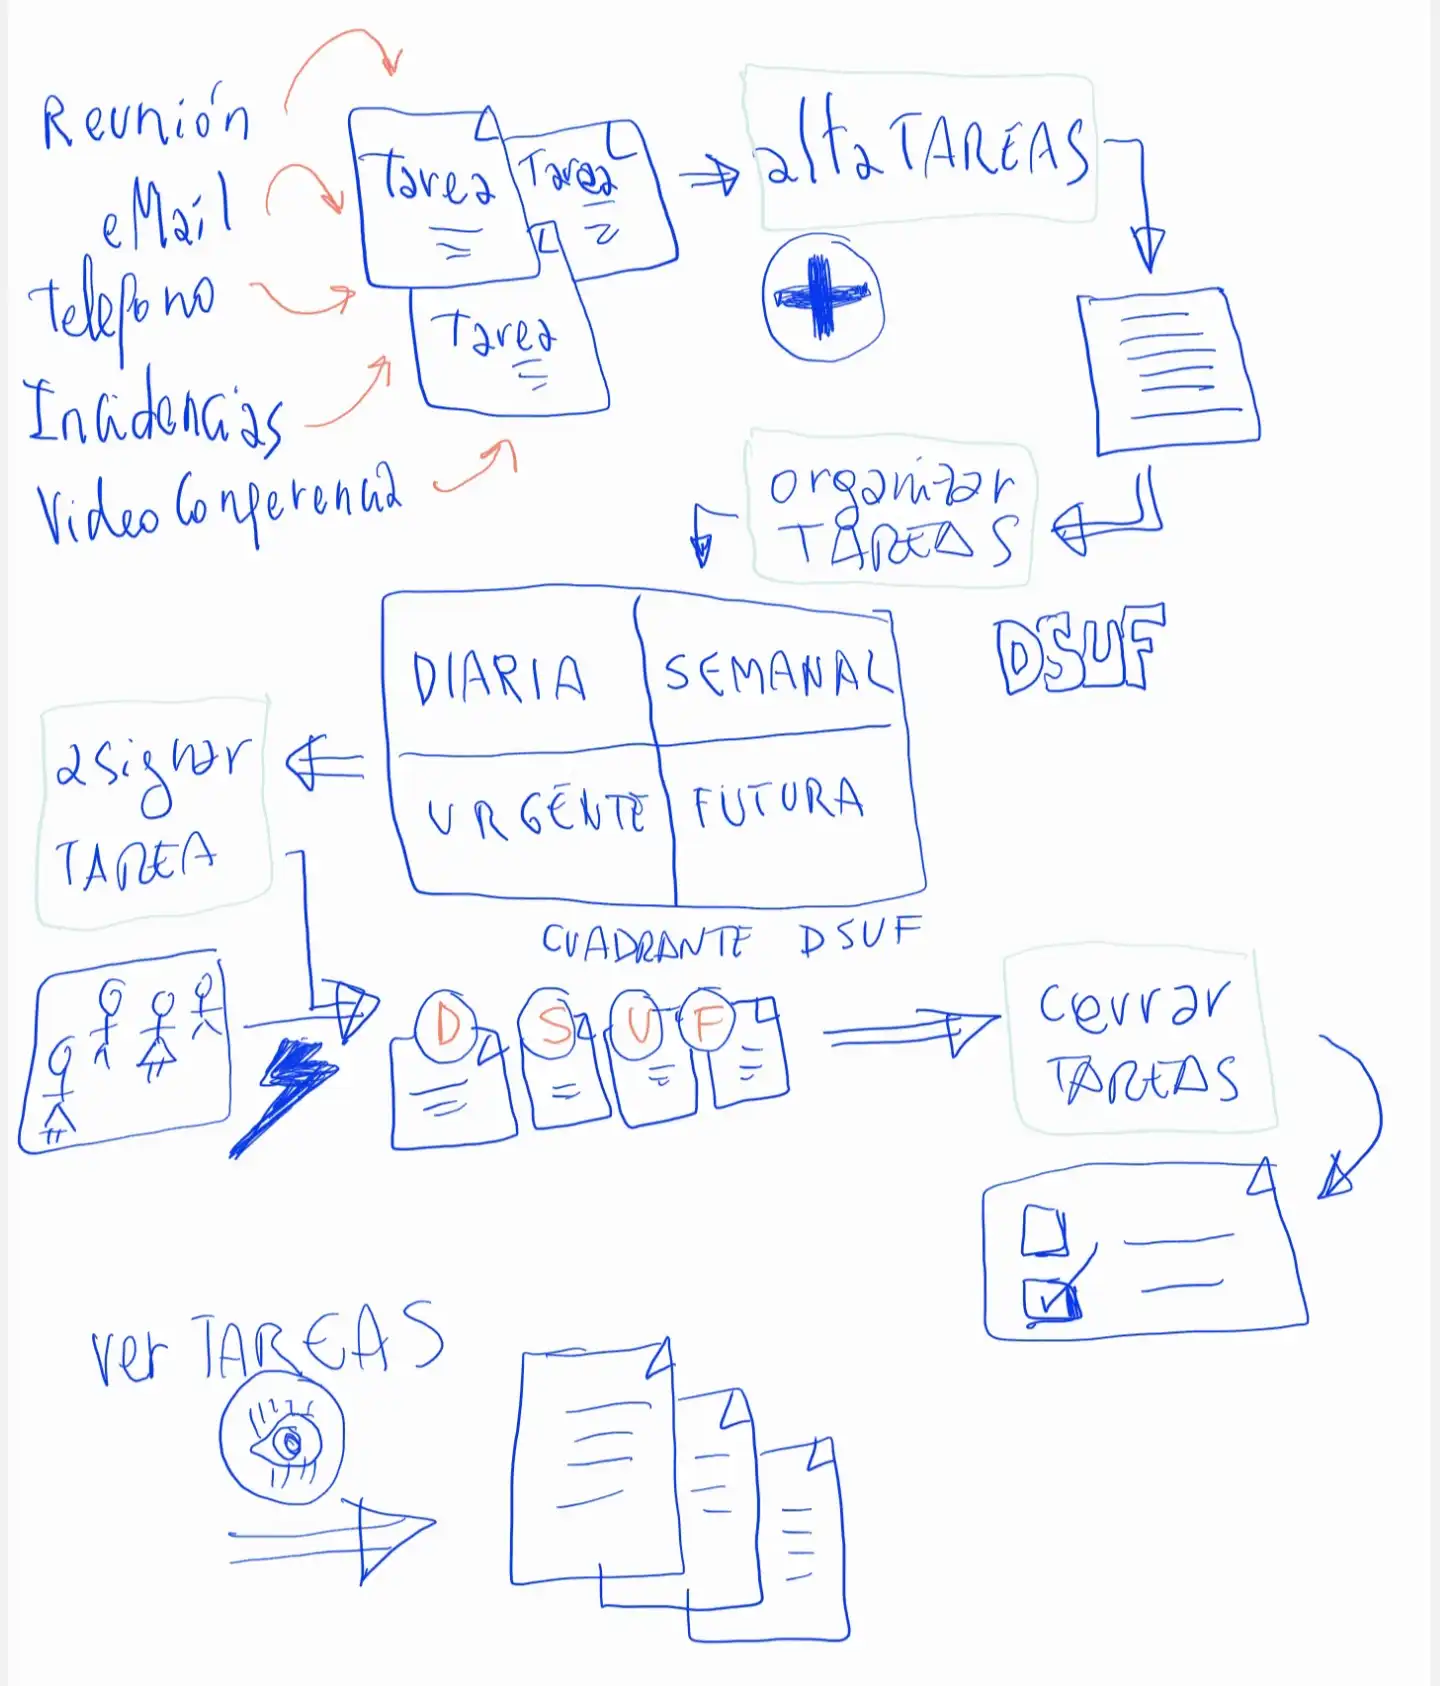 Reunión
eMail
telefono
Incidencias
Video Conferencia
Tarea
Tarea
Tarea
alta TAREAS
organizar
TAREAS
DSUF
DIARIA
SEMANAL
URGENTE
FUTURA
CUADRANTE DSUF
asignar
TAREA
D
S
U
F
cerrar
TAREAS
ver TAREAS